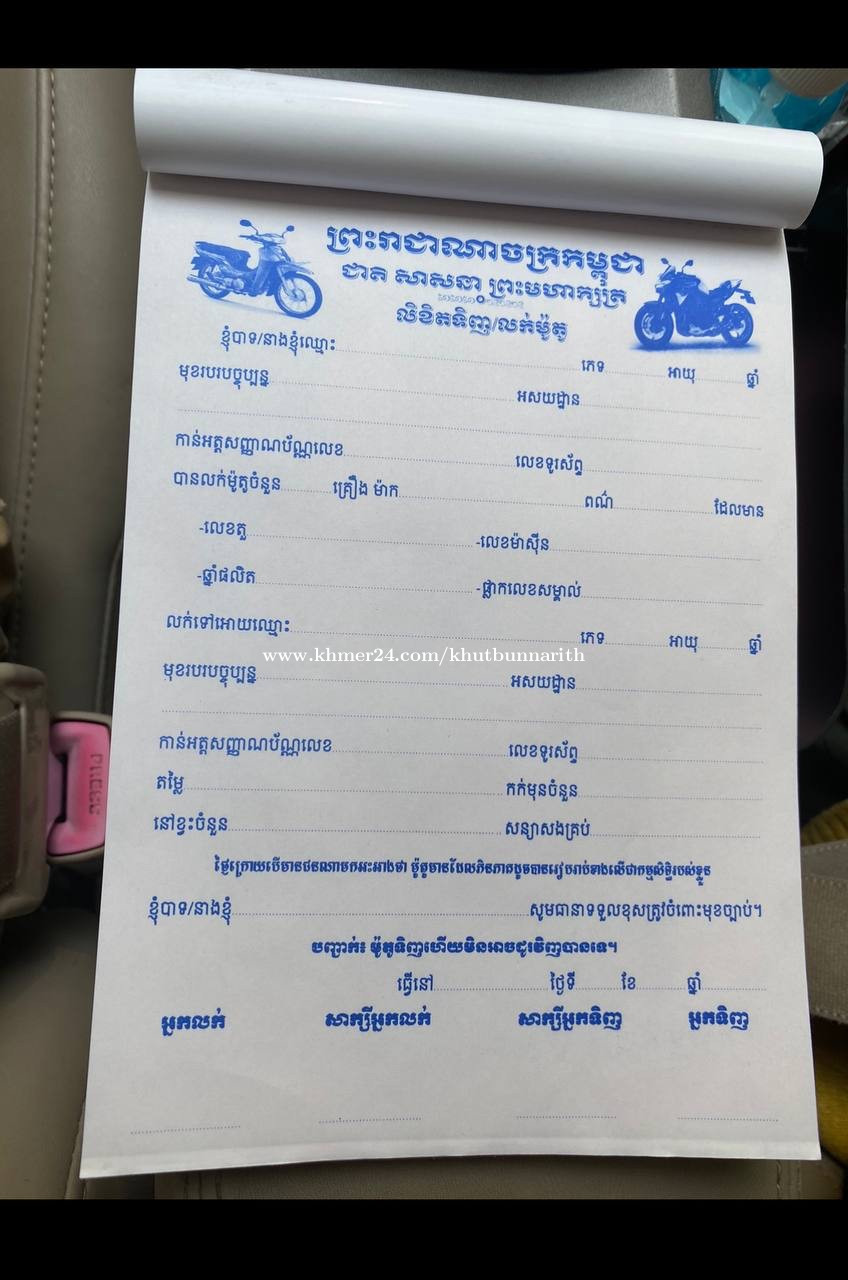 ព្រះរាជាណាចក្រកម្ពុជា
ជាតិ សាសនា ព្រះមហាក្សត្រ
លិខិតទិញ/លក់ម៉ូតូ
ខ្ញុំបាទ/នាងខ្ញុំឈ្មោះ ភេទ អាយុ ឆ្នាំ
មុខរបរបច្ចុប្បន្ន អសយដ្ឋាន
កាន់អត្តសញ្ញាណប័ណ្ណលេខ លេខទូរស័ព្ទ
បានលក់ម៉ូតូចំនួន គ្រឿង ម៉ាក ពណ៌ ដែលមាន
-លេខតួ -លេខម៉ាស៊ីន
-ឆ្នាំផលិត -ផ្លាកលេខសម្គាល់
លក់ទៅអោយឈ្មោះ ភេទ អាយុ ឆ្នាំ
www.khmer24.com/khutbunnarith
មុខរបរបច្ចុប្បន្ន អសយដ្ឋាន
កាន់អត្តសញ្ញាណប័ណ្ណលេខ លេខទូរស័ព្ទ
តម្លៃ កក់មុនចំនួន
នៅខ្វះចំនួន សន្យាសងគ្រប់
ថ្ងៃក្រោយបើមានជនណាមកអះអាងថា ម៉ូតូមានដែលភិនភាគដូចបានរៀបរាប់ខាងលើជាកម្មសិទ្ធិរបស់ខ្លួន
ខ្ញុំបាទ/នាងខ្ញុំ សូមធានាទទួលខុសត្រូវចំពោះមុខច្បាប់។
បញ្ជាក់៖ ម៉ូតូទិញហើយមិនអាចដូរវិញបានទេ។
ធ្វើនៅ ថ្ងៃទី ខែ ឆ្នាំ
អ្នកលក់ សាក្សីអ្នកលក់ សាក្សីអ្នកទិញ អ្នកទិញ